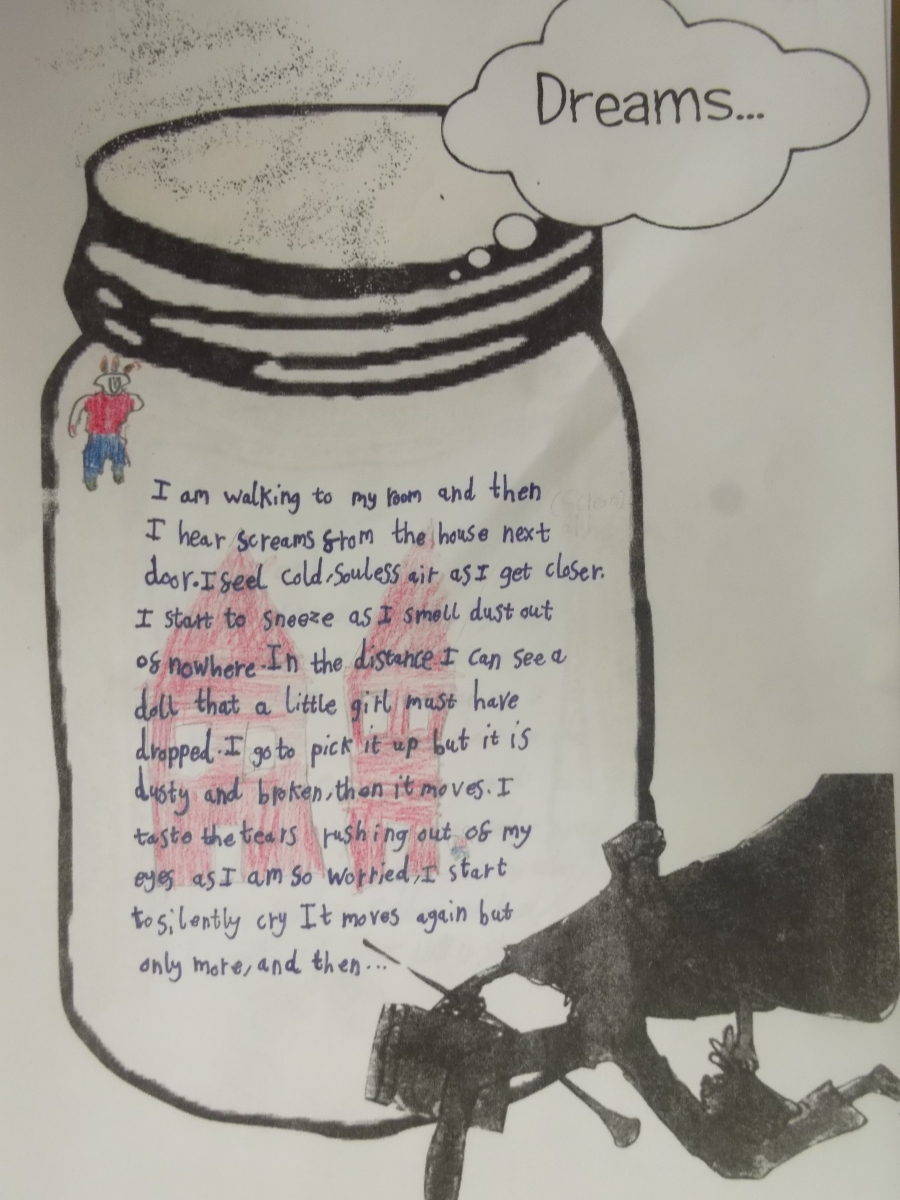 Dreams...
I am walking to my room and then
I hear screams from the house next
door. I feel cold, souless air as I get closer.
I start to sneeze as I smell dust out
of nowhere. In the distance I can see a
doll that a little girl must have
dropped. I go to pick it up but it is
dusty and broken, then it moves. I
taste the tears rushing out of my
eyes as I am so worried, I start
to silently cry It moves again but
only more, and then...